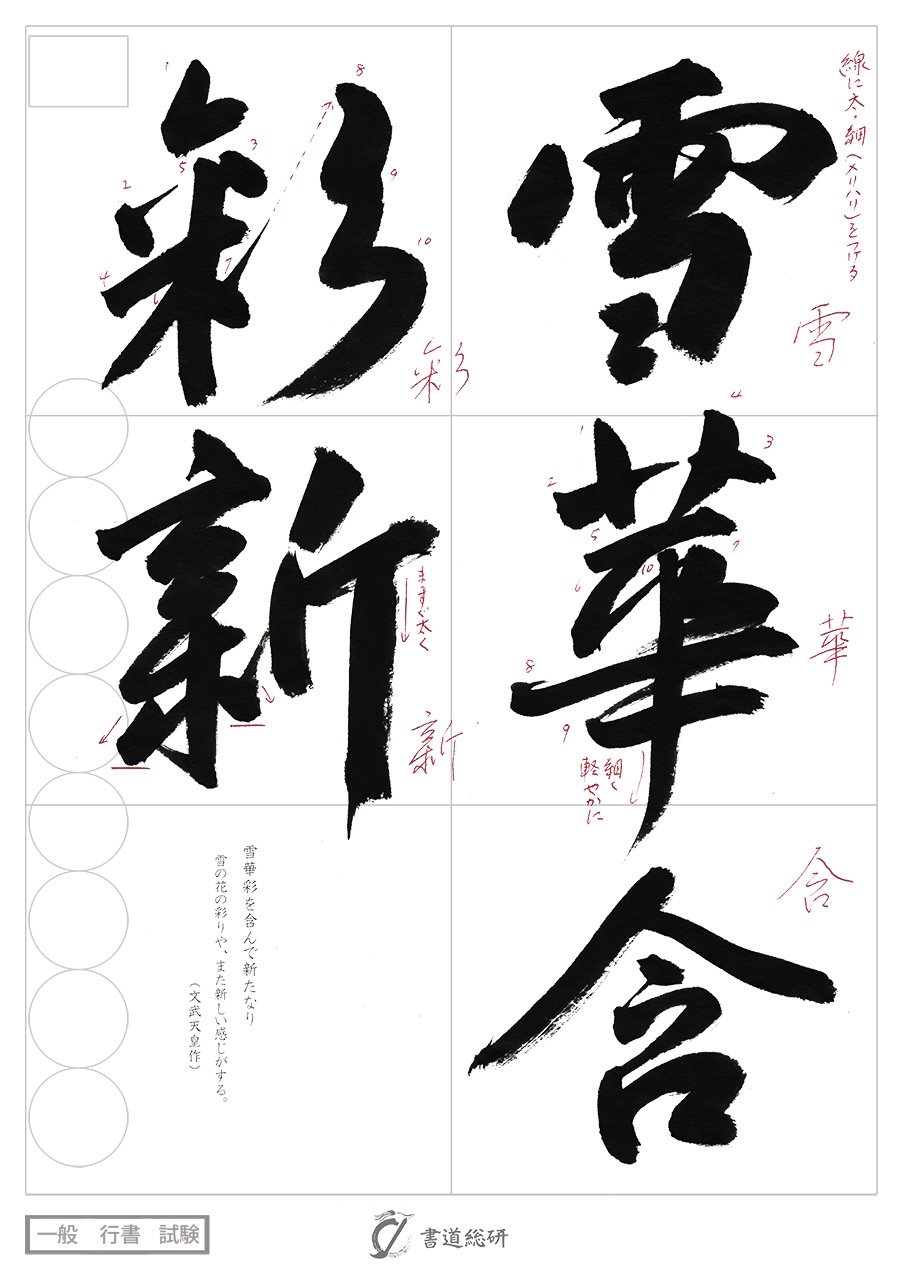 雪華含
彩新
線に太・細(メリハリ)をつける
雪
華
細く
軽やかに
含
彩
ますぐ太く
新
1
2
3
4
5
6
7
8
9
10
1
2
3
4
5
7
8
9
10
雪華彩を含んで新たなり
雪の花の彩りや、また新しい感じがする。
(文武天皇作)
一般 行書 試験
書道総研